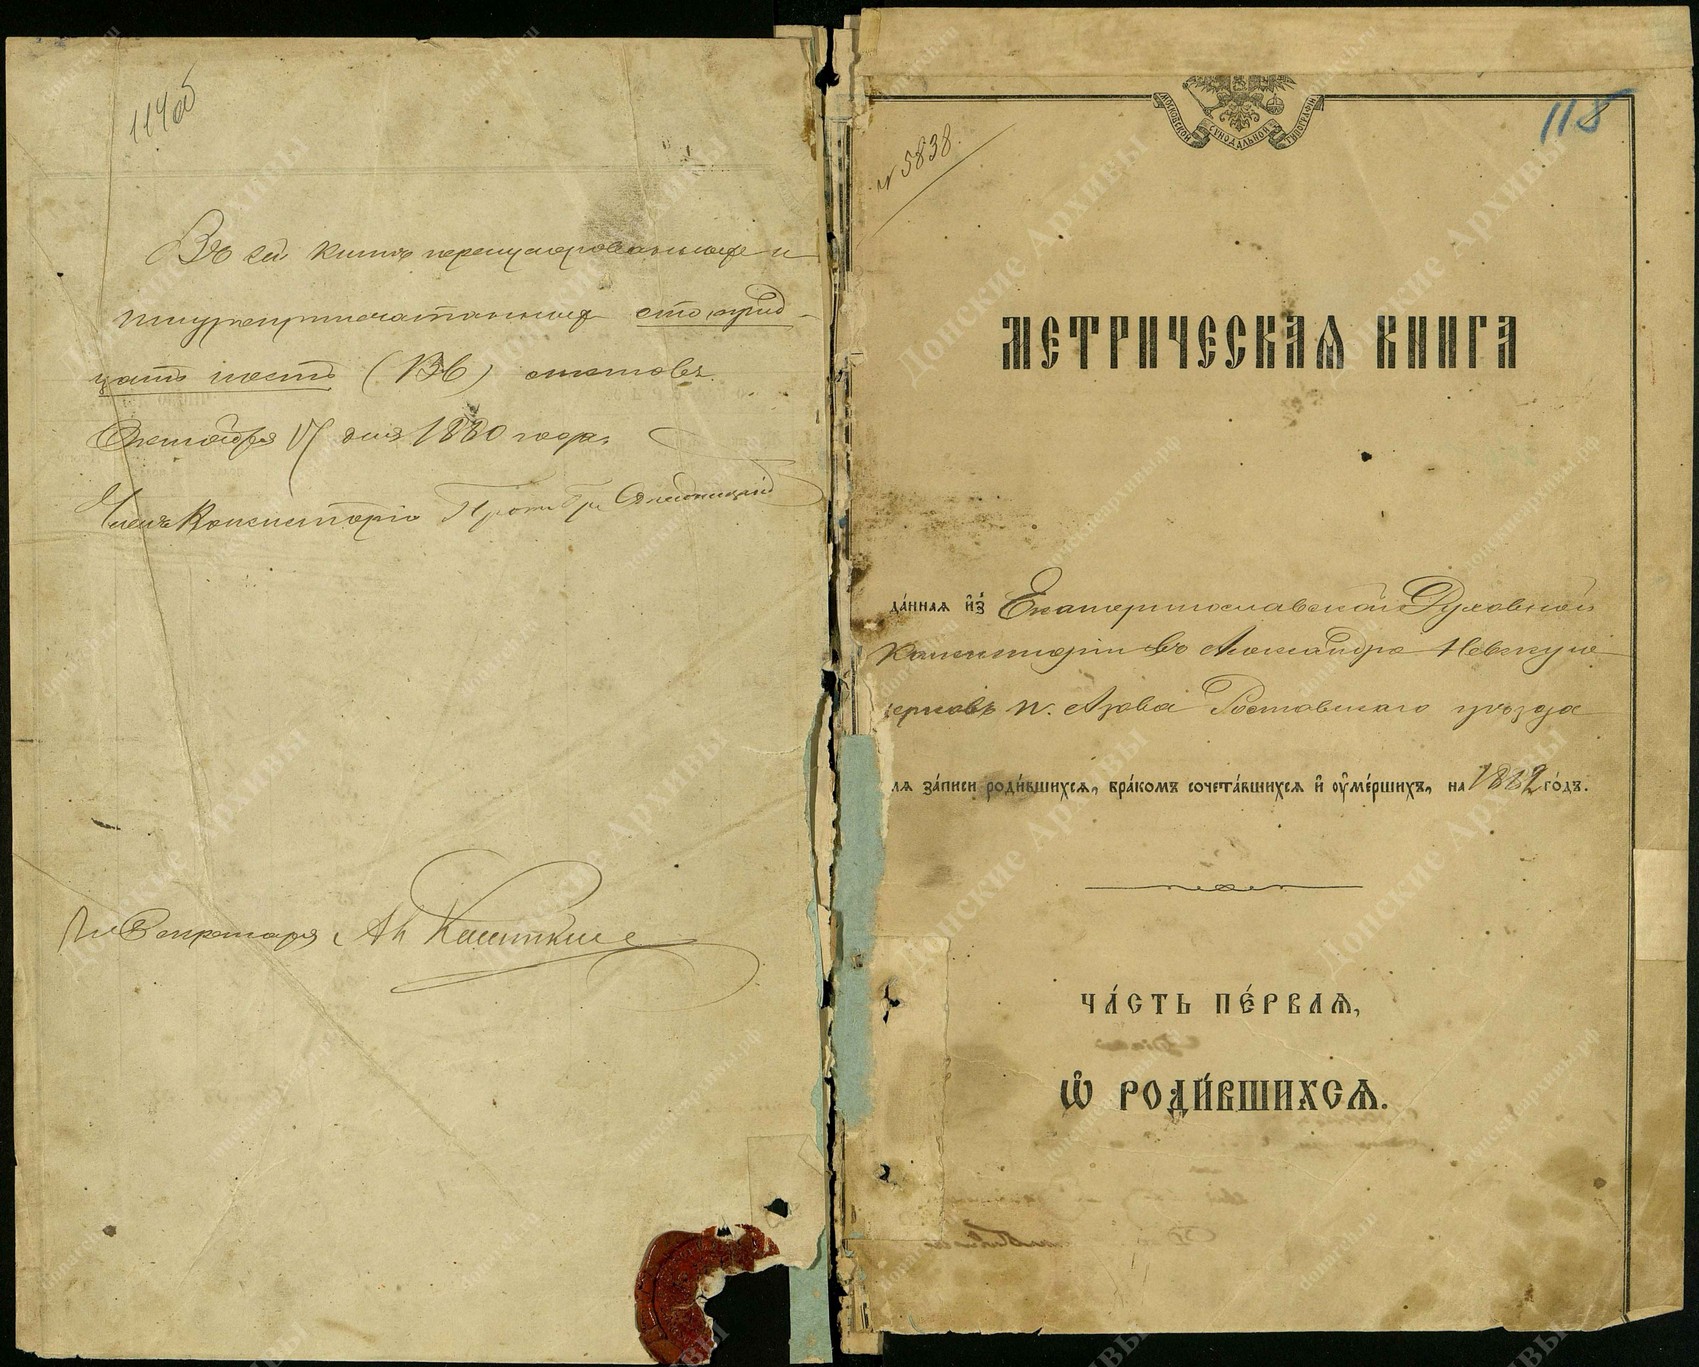 114об
Въ сей книгѣ перенумерованныхъ и
шнуроприпечатанныхъ сто трид-
цать шесть (136) листовъ.
Октября 17 дня 1880 года.
Членъ Консисторіи Прот.
Секретаря
118
МОСКОВСКОЙ СѴНОДАЛЬНОЙ ТИПОГРАФІИ
№ 5838.
МЕТРИЧЕСКАѦ КНИГА
да́ннаѧ и҆з̾ Екатеринославской Духовной
Консисторіи въ Александро Невскую
церковь п. Азова Ростовскаго уѣзда
лѧ за́писи роди́вшихсѧ, бра́комъ сочета́вшихсѧ и҆ ᲂу҆ме́ршихъ, на 1882 го́дъ.
ЧА́СТЬ ПЕ́РВАѦ,
Ѽ РОДИ́ВШИХСѦ.
Донские Архивы
donarch.ru
донскиеархивы.рф